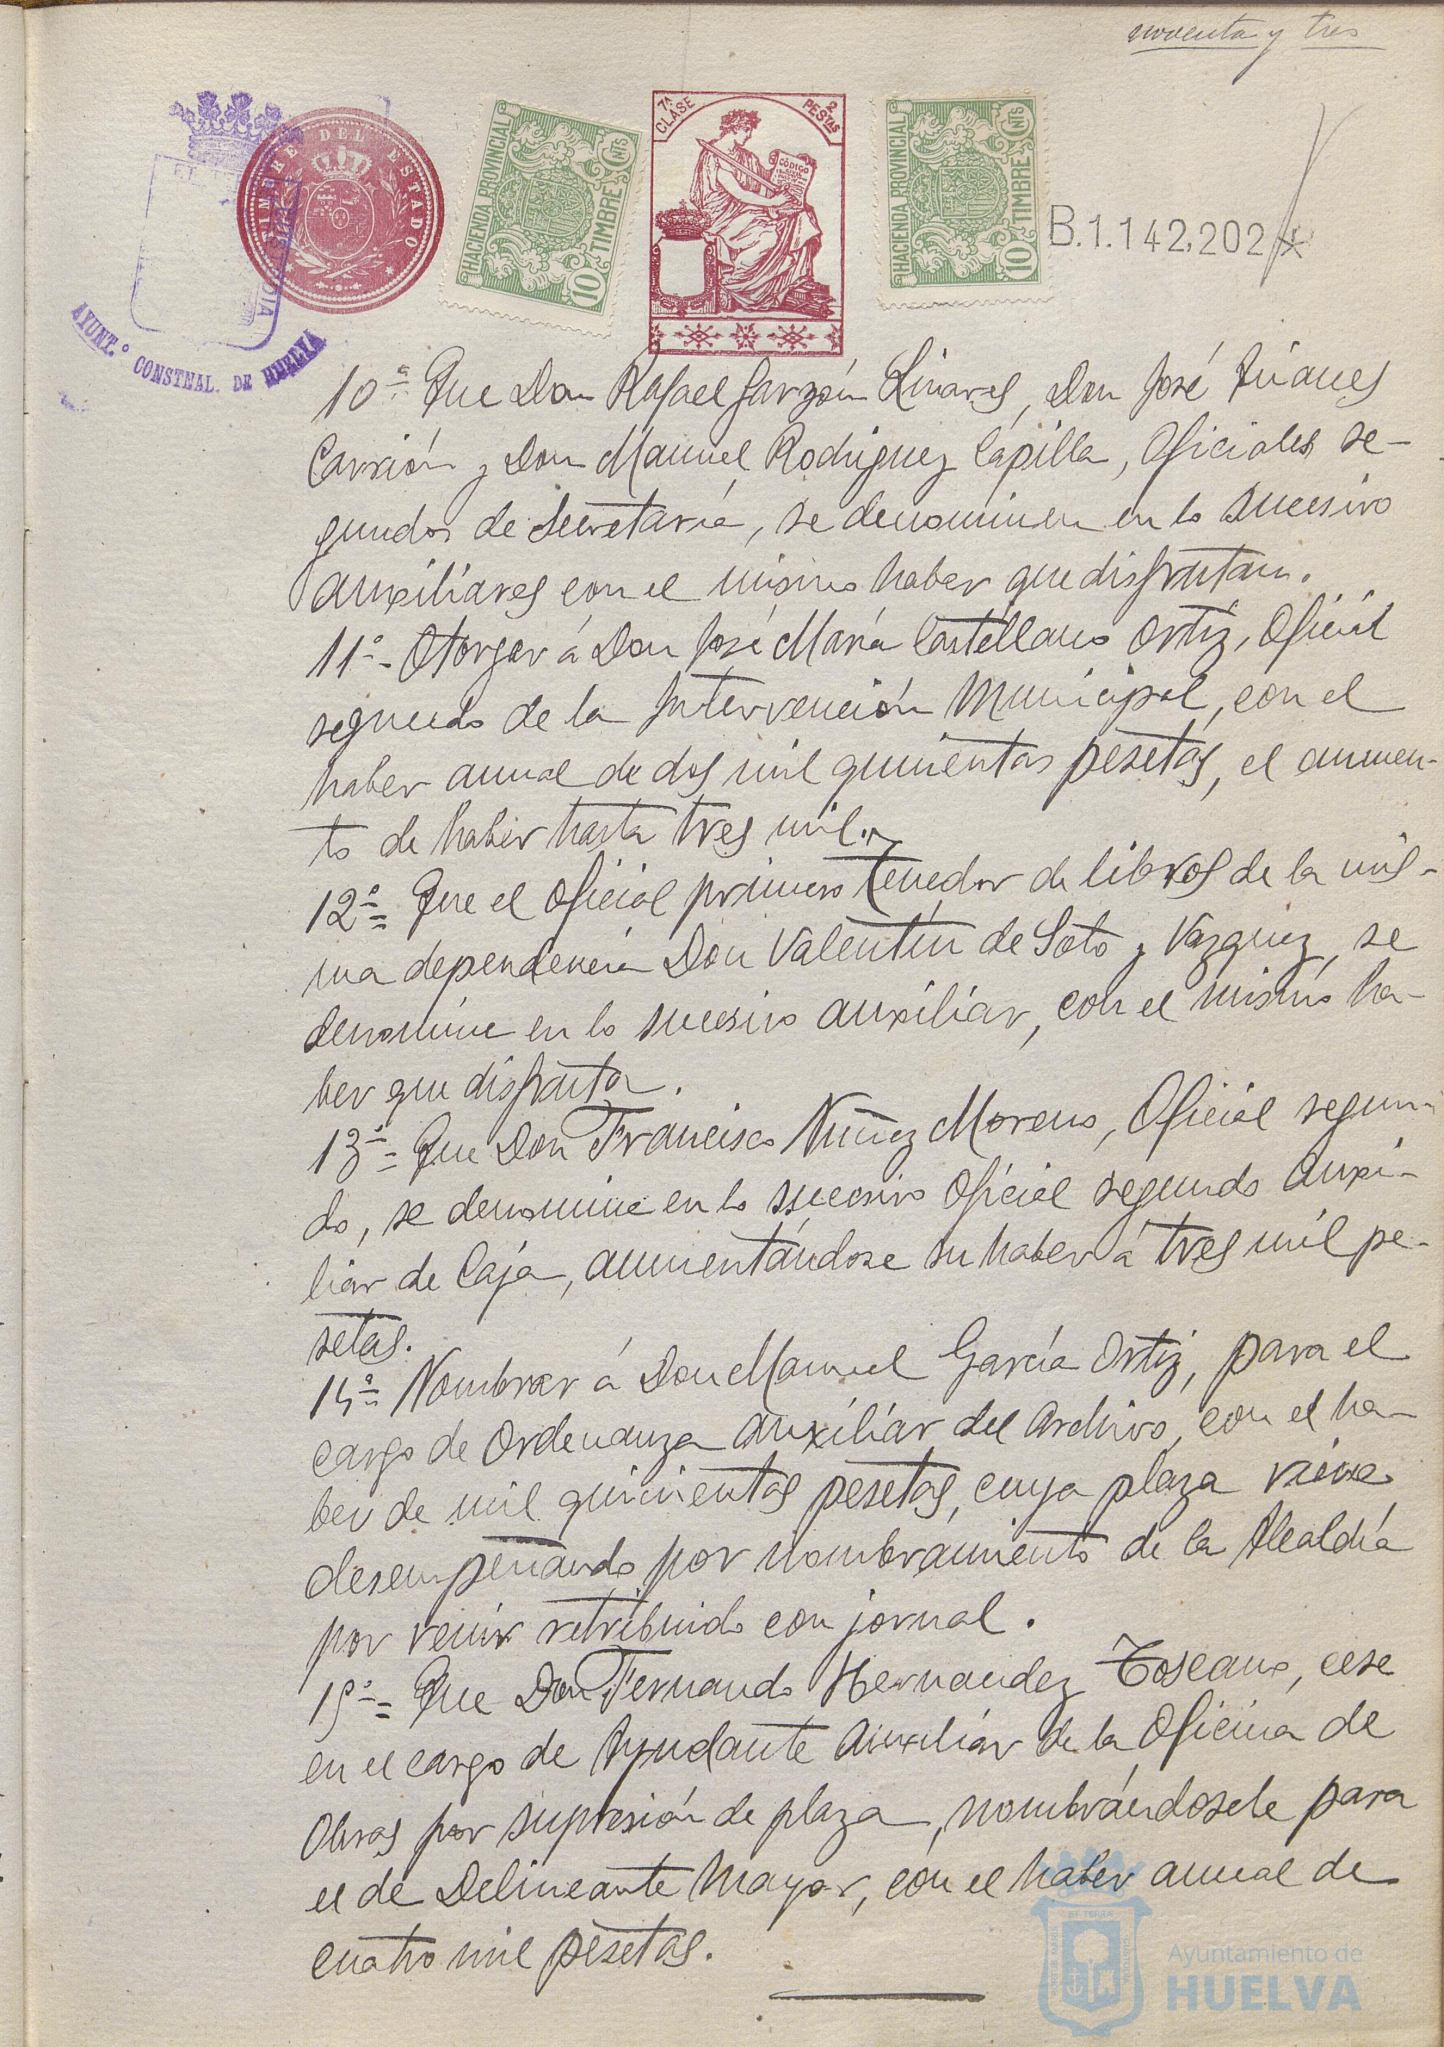 noventa y tres
TIMBRE DEL ESTADO
AYUNT.º CONSTNAL. DE HUELVA
HACIENDA PROVINCIAL
10 CNTS
TIMBRE 10
7ª CLASE
2 PESTAS
CÓDIGO
HACIENDA PROVINCIAL
10 CNTS
TIMBRE 10
B.1.142,202 *
10ª- Que Don Rafael Garzón Linares, Don José Fúnes
Carrión y Don Manuel Rodriguez Capilla, Oficiales se-
gundos de Secretaría, se denominen en lo sucesivo
auxiliares con el mismo haber que disfrutan.
11º- Otorgar á Don José María Castellano Ortiz, Oficial
segundo de la Intervención Municipal, con el
haber anual de dos mil quinientas pesetas, el aumen-
to de haber hasta tres mil.
12º= Que el Oficial primero Tenedor de libros de la mis-
ma dependencia Don Valentín de Soto y Vazquez, se
denomine en lo sucesivo auxiliar, con el mismo ha-
ber que disfruta.
13º= Que Don Francisco Nuñez Moreno, Oficial segun-
do, se denomine en lo sucesivo Oficial segundo auxi-
liar de Caja, aumentándose su haber á tres mil pe-
setas.
14º= Nombrar á Don Manuel García Ortiz, para el
cargo de Ordenanza auxiliar del Archivo, con el ha-
ber de mil quinientas pesetas, cuya plaza viene
desempeñando por nombramiento de la Alcaldía
por venir retribuido con jornal.
15º= Que Don Fernando Hernandez Toscano, cese
en el cargo de Ayudante Auxiliar de la Oficina de
Obras por supresión de plaza, nombrándosele para
el de Delineante Mayor, con el haber anual de
cuatro mil pesetas.
Ayuntamiento de
HUELVA